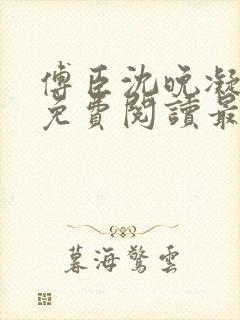 傅臣沈晚凝
免費閱讀最
暮海驚雲